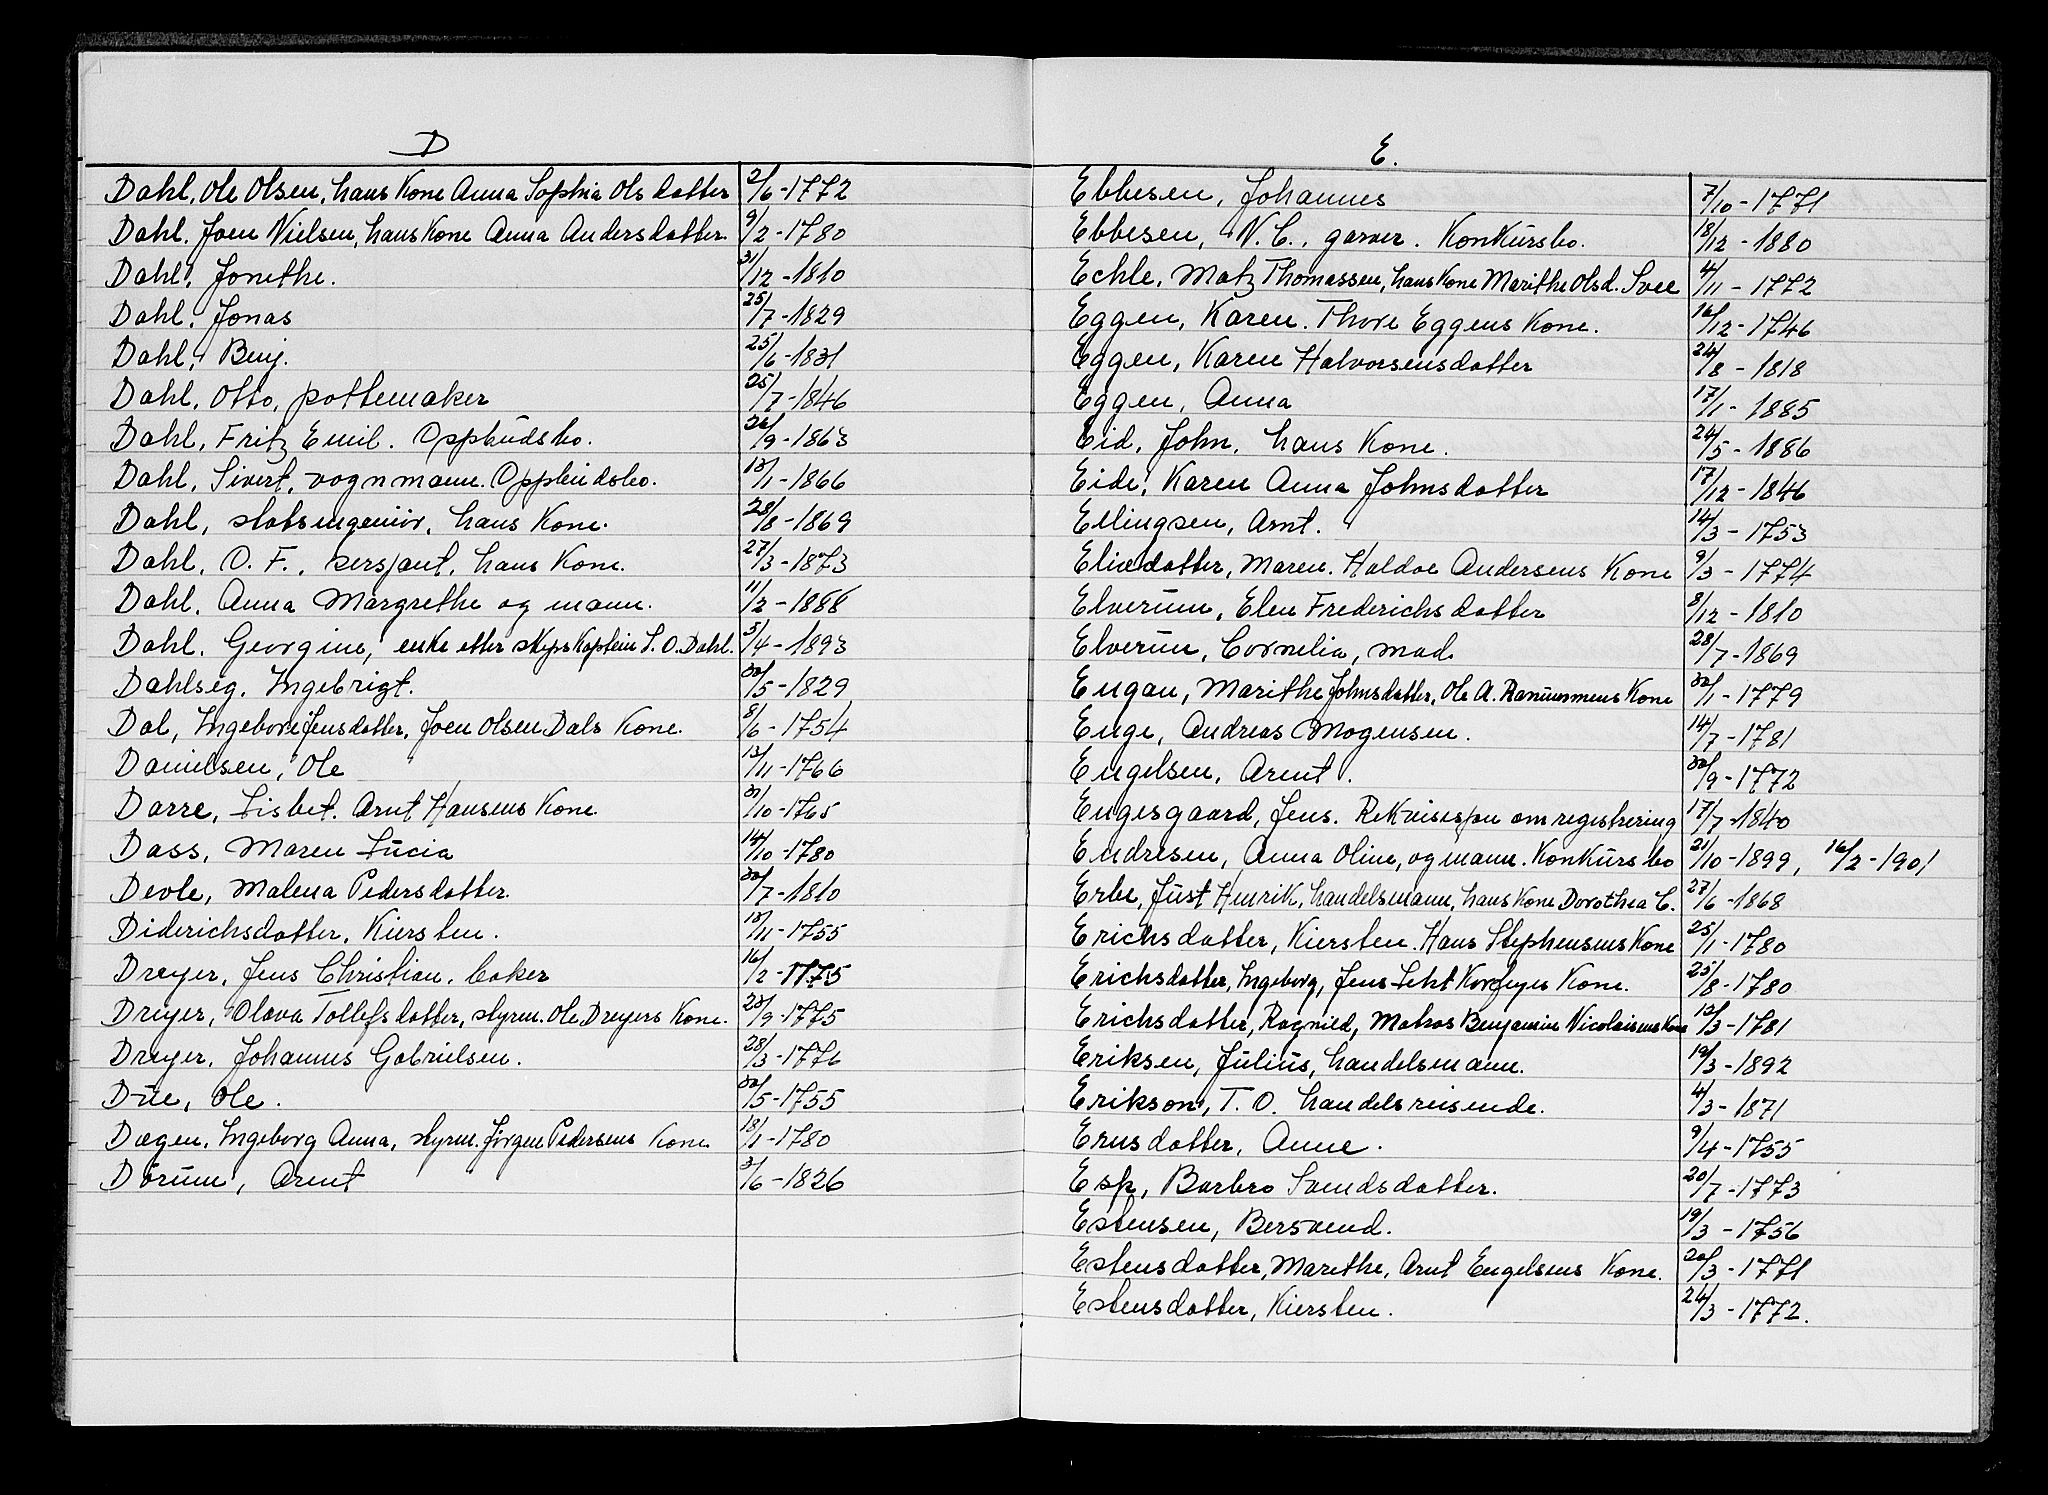 D
Dahl, Ole Olsen, hans Kone Anna Sophia Olsdatter 2/6-1772
Dahl. Joen Nielsen, hans Kone Anna Andersdatter. 9/2-1780
Dahl, Jonethe. 31/12-1810
Dahl, Jonas 25/7-1829
Dahl, Benj. 25/6-1831
Dahl, Otto, pottemaker 25/7-1846
Dahl, Fritz Emil. Oppbudsbo. 26/9-1863
Dahl, Sivert, vognmann. Oppbudsbo. 13/1-1866
Dahl, statsingeniör, hans Kone. 28/8-1869
Dahl, O. F., sersjant, hans Kone. 27/3-1873
Dahl, Anna Margrethe og mann. 11/2-1888
Dahl. Georgine, enke etter skipskaptein S. O. Dahl. 5/4-1893
Dahlseg, Ingebrigt. 30/5-1829
Dal, Ingebore Jensdatter, Joen Olsen Dals Kone. 8/6-1754
Danielsen, Ole 13/11-1766
Darre, Lisbet. Arnt Hansens Kone. 31/10-1765
Dass, Maren Lucia 14/10-1780
Devle, Malena Pedersdatter. 30/7-1810
Diderichsdatter, Kiersten. 13/11-1755
Dreyer, Jens Christian, baker 16/2-1775
Dreyer, Olava Tollefsdatter, styrm. Ole Dreyers Kone. 23/9-1775
Dreyer, Johannes Gabrielsen. 28/3-1776
Due, Ole. 30/5-1755
Dægen, Ingeborg Anna, styrm. Jörgen Pedersens Kone. 18/1-1780
Dörum, Arnt 3/6-1826
E.
Ebbesen, Johannes 7/10-1771
Ebbesen, N. C., garver. Konkursbo. 18/12-1880
Echle, Matz Thomassen, hans Kone Marithe Olsd. Svee 4/11-1772
Eggen, Karen. Thore Eggens Kone. 16/12-1746
Eggen, Karen Halvorsensdatter 24/8-1818
Eggen, Anna 17/1-1885
Eid, John, hans Kone. 24/5-1886
Eide, Karen Anna Johnsdatter 17/12-1846
Ellingsen, Arnt. 14/3-1753
Eliædatter, Maren. Haldoe Andersens Kone 9/3-1774
Elverum, Elen Frederichsdatter 8/12-1810
Elverum, Cornelia, mad. 28/7-1869
Engan, Marithe Johnsdatter, Ole A. Kone 30/1-1779
Enge, Andreas Mogensen. 14/7-1781
Engelsen, Arent. 30/9-1772
Engesgaard, Jens. Rekvisisjon om registrering 17/7-1840
Endresen, Anna Oline, og mann. Konkursbo 21/10-1899, 16/2-1901
Erbe, Just Henrik, handelsmann, hans Kone Dorothea C. 27/6-1868
Erichsdatter, Kiersten. Hans Stephensens Kone 25/1-1780
Erichsdatter, Ingeborg, Jens Kone. 25/8-1780
Erichsdatter, Ragnild, Matros Benjamin Nicolaisens Kone 13/3-1781
Eriksen, Julius, handelsmann. 19/3-1892
Erikson, T. O. handelsreisende. 4/3-1871
Ernsdatter, Anne. 9/4-1755
Esp, Barbro Svendsdatter. 20/7-1773
Estensen, Bersvend. 19/3-1756
Estensdatter, Marethe, Arnt Engelsens Kone. 20/3-1771
Estensdatter, Kiersten. 24/3-1772.